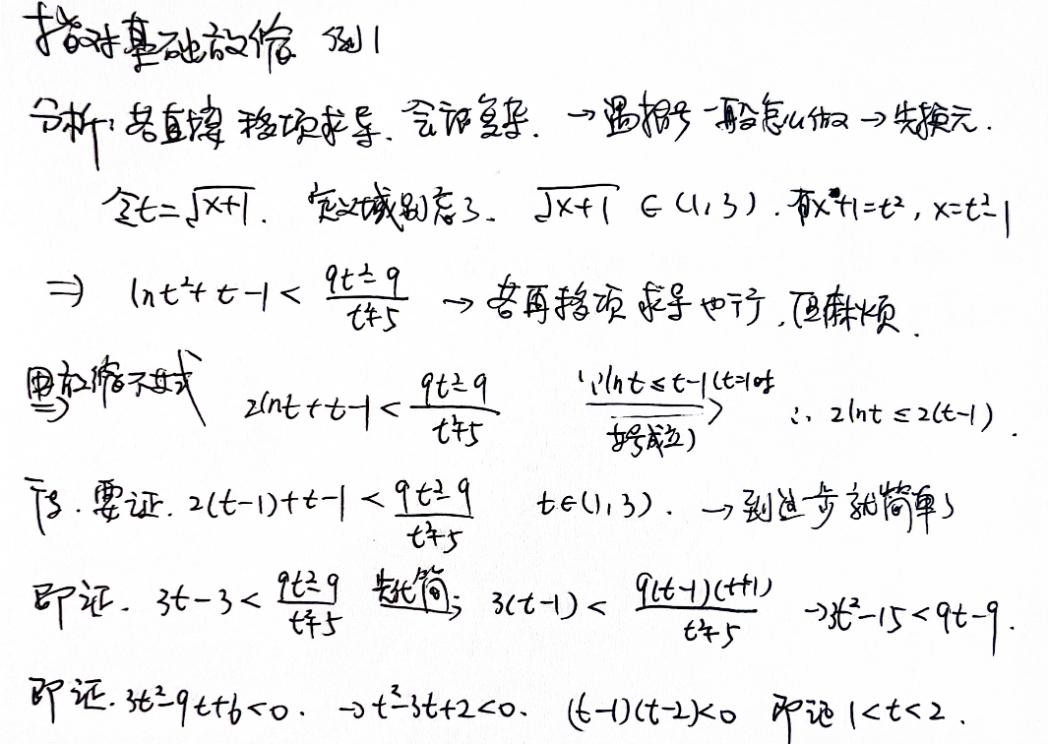 指对基础放缩 例1
分析: 若直接移项求导. 会话复杂. → 遇根号一般怎么做 → 先换元.
令t=√(x+1). 定义域别忘了. √(x+1) ∈ (1,3). 有x+1=t², x=t²-1
⇒ ln t²+t-1 < (9t²-9)/(t²+5) → 若再移项求导也行, 但麻烦.
用放缩不等式 ⇒ 2lnt+t-1 < (9t²-9)/(t²+5) ∵lnt≤t-1(t=1时等号成立) → ∴ 2lnt ≤ 2(t-1).
要证. 2(t-1)+t-1 < (9t²-9)/(t²+5) t∈(1,3). → 到这步就简单了
即证. 3t-3 < (9t²-9)/(t²+5) 先化简; 3(t-1) < 9(t-1)(t+1)/(t²+5) → 3t²-15 < 9t-9.
即证. 3t²-9t+6<0. → t²-3t+2<0. (t-1)(t-2)<0 即证 1<t<2.